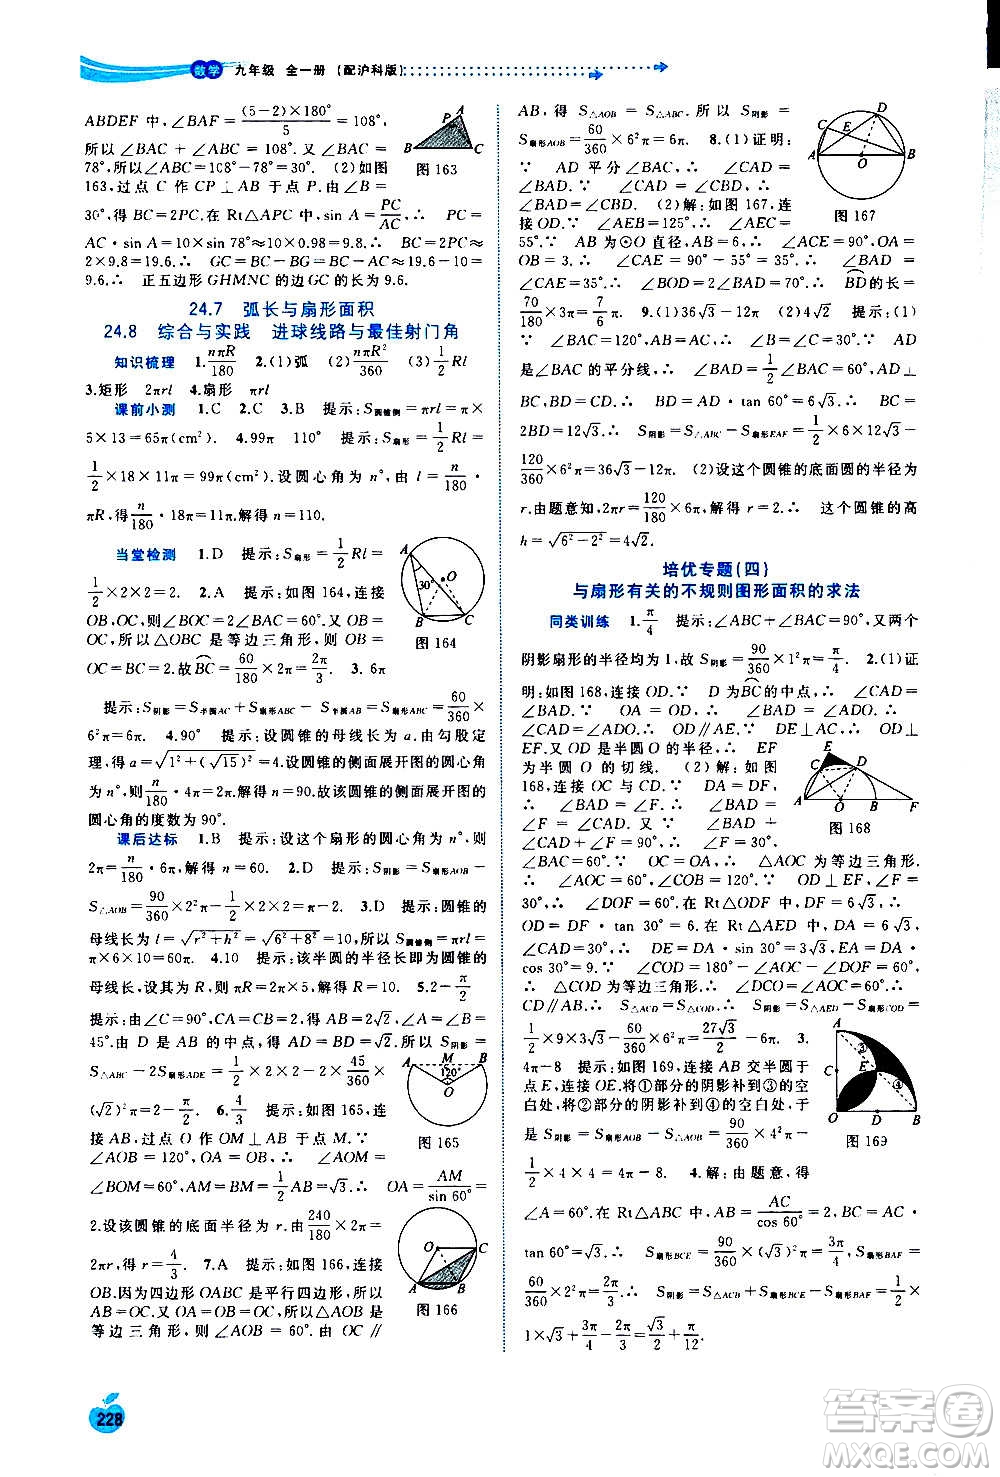 数学 九年级 全一册 (配沪科版)
ABDEF 中,∠BAF=(5-2)×180°/5=108°,
所以∠BAC+∠ABC=108°. 又∠BAC=
78°,所以∠ABC=108°-78°=30°. (2)如图
163,过点 C 作 CP⊥AB 于点 P. 由∠ABC=
30°,得 BC=2PC. 在 Rt△APC 中,sin A=PC/AC,∴ PC=
AC·sin A=10×sin 78°≈10×0.98=9.8. ∴ BC=2PC=
2×9.8=19.6. ∴ GC=BC-BG=BC-AC≈19.6-10=
9.6. ∴ 正五边形 GHMNC 的边 GC 长为 9.6.
图 163
24.7 弧长与扇形面积
24.8 综合与实践 进球线路与最佳射门角
知识梳理 1. nπR/180 2.(1)弧 (2)nπR²/360 (3)1/2 Rl
3.矩形 2πrl 4.扇形 πrl
课前小测 1.C 2.C 3.B 提示:S圆锥侧=πrl=π×
5×13=65π(cm²). 4.99π 110° 提示:S扇形=1/2 Rl=
1/2×18×11π=99π(cm²). 设圆心角为 n°,则 l=n/180·
πR,得n/180·18π=11π,解得 n=110.
当堂检测 1.D 提示:S扇形=1/2 Rl=
1/2×2×2=2. 2.A 提示:如图 164,连接
OB,OC,则∠BOC=2∠BAC=60°. 又 OB=
OC,所以△OBC 是等边三角形,所以 OB=
OC=BC=2. 故BC=60/180×2π=2π/3. 3. 6π
图 164
提示:S阴影=S半圆AC+S扇形ABC-S半圆AB=S扇形ABC=60/360×
6²π=6π. 4.90° 提示:设圆锥的母线长为 a. 由勾股定
理,得 a=√(1²+(√15)²)=4. 设圆锥的侧面展开图的圆心角
为 n°,则n/180×4π=2π,解得 n=90. 故该圆锥的侧面展开图的
圆心角的度数为 90°.
课后达标 1.B 提示:设这个扇形的圆心角为 n°,则
2π=n/180·6π,解得 n=60. 2.D 提示:S阴影=S扇形AOB-
S△AOB=90/360×2²π-1/2×2×2=π-2. 3.D 提示:圆锥的
母线长为 l=√(r²+h²)=√(6²+8²)=10,所以 S圆锥侧=πrl=
π×6×10=60π. 4.10 提示:该半圆的半径长即为圆锥的
母线长,设其为 R,则 πR=2π×5,解得 R=10. 5.2-π/2
提示:由∠C=90°,CA=CB=2,得 AB=2√2,∠A=∠B=
45°. 由 D 是 AB 的中点,得 AD=BD=√2,所以 S阴影=
S△ABC-2S扇形ADE=1/2×2×2-2×45/360π×
(√2)²=2-π/2. 6. 4/3 提示:如图 165,连
接 AB,过点 O 作 OM⊥AB 于点 M,则
∠AOB=120°,OA=OB. ∴ ∠AOM=
∠BOM=60°,AM=1/2AB=√3. ∴ OA=AM/sin 60°=
2. 设该圆锥的底面半径为 r. 由240/180×2π=
2πr,得 r=4/3. 7.A 提示:如图 166,连接
OB. 因为四边形 OABC 是平行四边形,所以
AB=OC. 又 OA=OB=OC,所以△AOB 是
等边三角形,则∠AOB=60°. 由 OC∥
图 165
图 166
AB,得 S△AOB=S△ABC. 所以 S阴影=
S扇形AOB=60/360×6²π=6π. 8.(1)证明:
∵ AD 平分∠CAB,∴ ∠CAD=
∠BAD. ∵ ∠CAD=∠CBD,∴
∠BAD=∠CBD. (2)解:如图 167,连
接 OD. ∵ ∠AEB=125°,∴ ∠AEC=
55°. ∵ AB 为⊙O 直径,∴ ∠ACE=90°,
OB=3. ∴ ∠CAE=90°-55°=35°. ∴ ∠BAD=
∠CAE=35°. ∴ ∠BOD=2∠BAD=70°. ∴ BD的长=
70/180×3π=7π/6. 9.(1)36√3-12π (2)4√2 提示:(1)
∵ ∠BAC=120°,AB=AC,∴ ∠B=∠C=30°. ∵ AD
是∠BAC 的平分线,∴ ∠BAD=1/2∠BAC=60°,∠ADB=
90°. ∴ BD=AD·tan 60°=6√3. ∴ BC=
2BD=12√3. ∴ S阴影=S△ABC-S扇形EAF=1/2×6×12√3-
120/360×6²π=36√3-12π. (2)设这个圆锥的底面圆的半径为
r. 由题意,得 2πr=120/180π×6,解得 r=2. ∴ 这个圆锥的高
h=√(6²-2²)=4√2.
图 167
培优专题(四)
与扇形有关的不规则图形面积的求法
同类训练 1. π/4 提示:∵ ∠A+∠B=90°,又两
阴影扇形的半径均为 1,故 S阴影=90/360×1²π=π/4. 2.(1)证
明:如图 168,连接 OD. ∵ D 为BC的中点,∴ ∠CAD=
∠BAD. ∵ OA=OD,∴ ∠BAD=∠ADO. ∴
∠CAD=∠ADO. ∴ OD∥AE. ∵ DE⊥EF,∴ OD⊥
EF. 又 OD 是半圆 O 的半径,∴ EF
为半圆 O 的切线. (2)解:如图
168,连接 OC 与 CD. ∵ DA=DF,∴
∠BAD=∠F. ∴ ∠BAD=
∠F=∠CAD. 又∵ ∠BAD+
∠CAD+∠F=90°,∴ ∠F=30°,
∠BAC=60°. ∵ OC=OA,∴ △AOC 为等边三角形.
∴ ∠AOC=60°,∠COB=120°. ∵ OD⊥EF,∠F=
30°,∴ ∠DOF=60°. 在 Rt△ODF 中,DF=6√3,∴
OD=DF·tan 30°=6. 在 Rt△AED 中,DA=
6√3,∠CAD=30°,∴ DE=DA·sin 30°=3√3,EA=DA·
cos 30°=9. ∵ ∠COD=180°-∠AOC-∠DOF=60°,
∴ △COD 为等边三角形. ∴ ∠DCO=∠AOC=60°. ∴
CD∥AB. ∴ S△ACD=S△COD. ∴ S阴影=S△AED-S扇形COD=
1/2×9×3√3-60/360×π×6²=27√3/2-6π. 3.
4π-8 提示:如图 169,连接 AB 交半圆于
点 E,连接 OE,将①部分的阴影补到③的空
白处,将②部分的阴影补到④的空白处,于
是 S阴影=S扇形AOB-S△AOB=90/360×4²π-
1/2×4×4=4π-8. 4.解:由题意,得
∠A=60°. 在 Rt△ABC 中,AB=AC/cos 60°=2,BC=AC·
tan 60°=√3. ∴ S扇形BCE=90/360π×(√3)²=3π/4,S扇形BAF=
60/360×2²π=2π/3. ∴ S阴影=S△ACB+S扇形BCE-S扇形BAF=1/2×
1×√3+3π/4-2π/3=√3/2+π/12.
图 168
图 169
228
答案圈
MXQE.COM